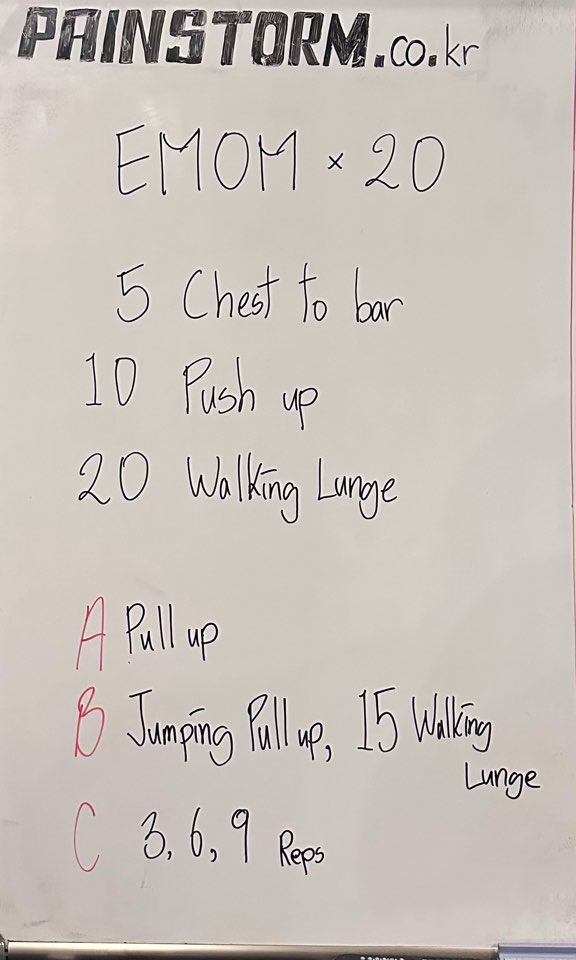 PAINSTORM.co.kr
EMOM × 20
5 Chest to bar
10 Push up
20 Walking Lunge
A Pull up
B Jumping Pull up, 15 Walking
Lunge
C 3, 6, 9 Reps